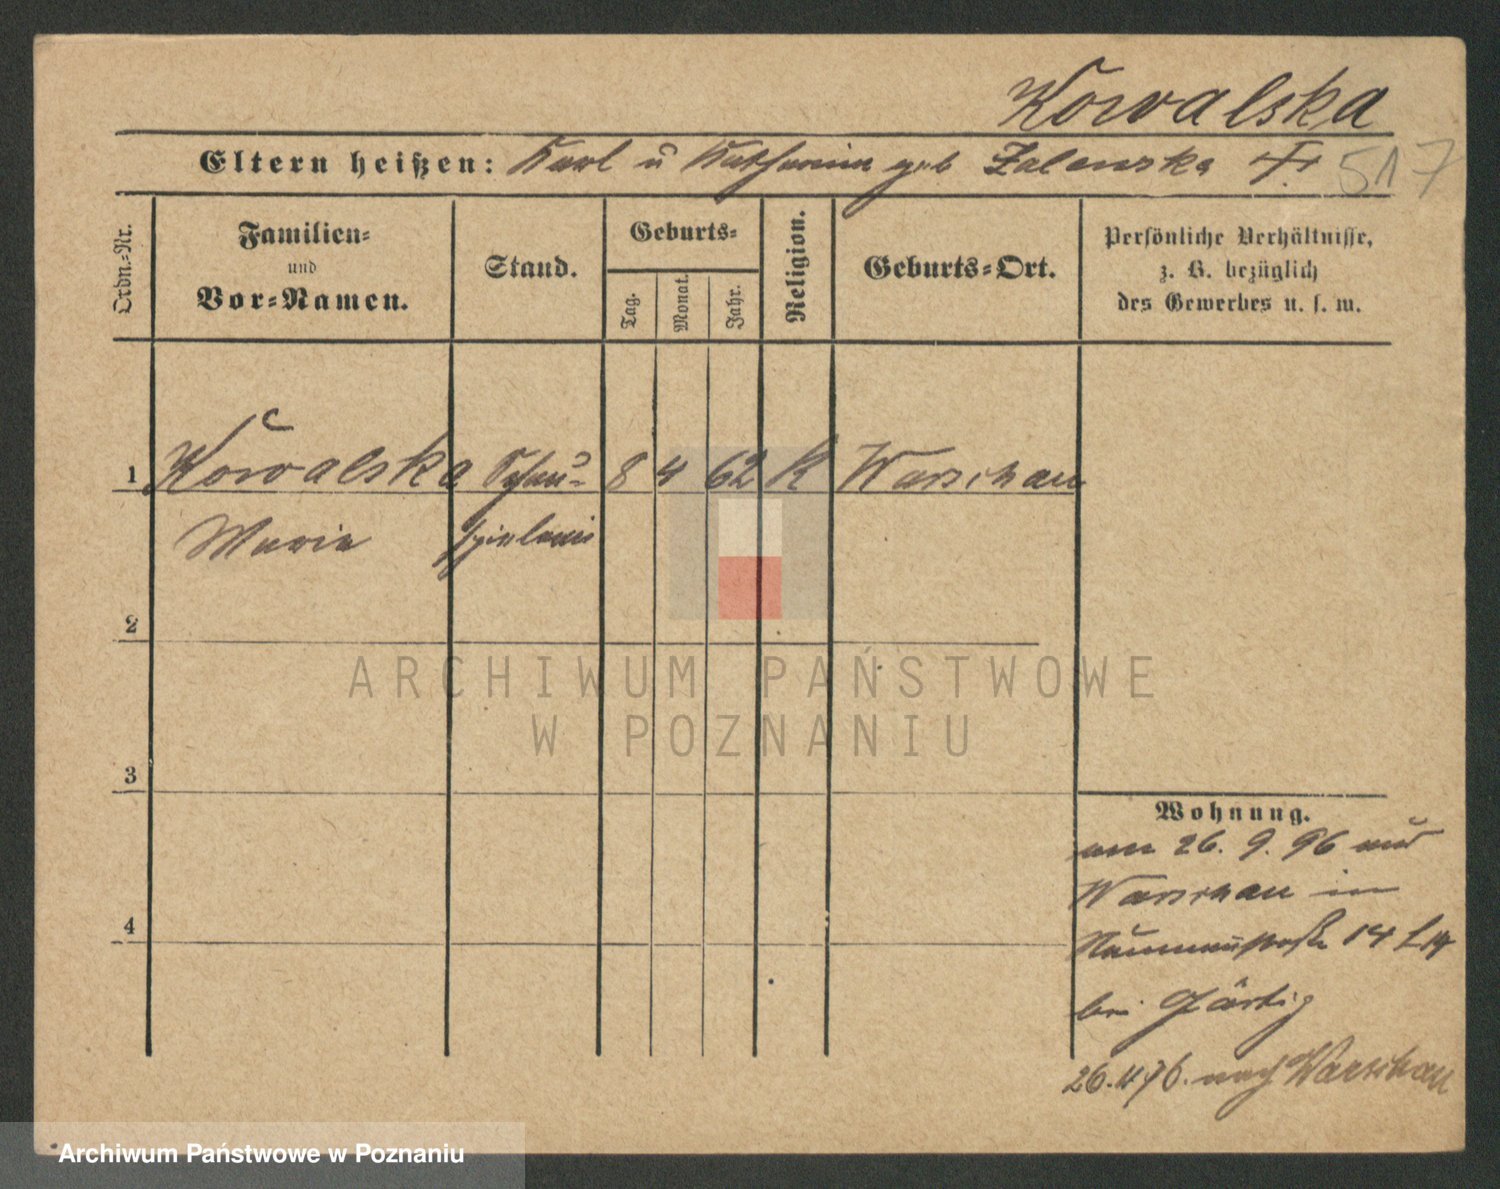 Kowalska
Eltern heißen: Karl u Katharina geb Zalenska
517
Ordn.-Nr.
Familien-
und
Vor-Namen.
Stand.
Geburts-
Tag.
Monat.
Jahr.
Religion.
Geburts-Ort.
Persönliche Verhältnisse,
z. B. bezüglich
des Gewerbes u. s. w.
1 Kowalska Schau- 8 4 62 K Warschau
Marie spielerin
2
ARCHIWUM PAŃSTWOWE
W POZNANIU
3
Wohnung.
am 26. 9. 96 aus
Warschau in
Naumannstraße 14
4
bei Gärtig
26.11.96. nach Warschau
Archiwum Państwowe w Poznaniu